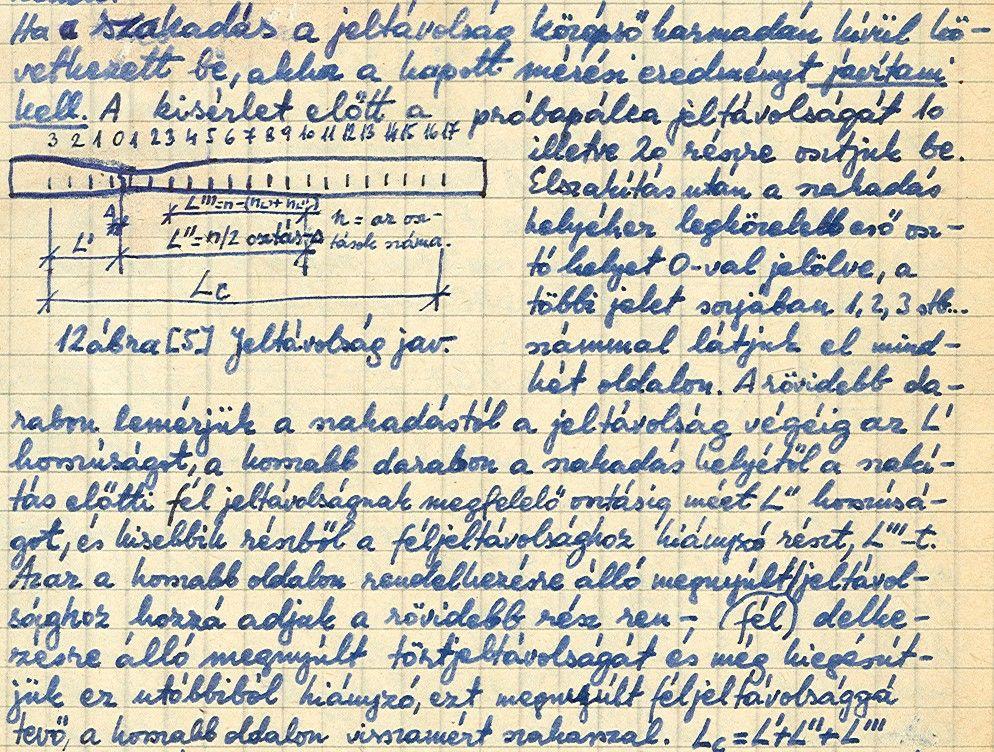 Ha a szakadás a jeltávolság középső harmadán kívül kö-
vetkezett be, akkor a kapott mérési eredményt javítani
kell. A kisérlet előtt a próbapálca jeltávolságát 10
3 2 1 0 1 2 3 4 5 6 7 8 9 10 11 12 13 14 15 16 17
illetve 20 részre osztjuk be.
Elszakítás után a szakadás
helyéhez legközelebb eső osz-
tó helyet 0-val jelölve, a
többi jelet sorjában 1, 2, 3 stb...
számmal látjuk el mind-
két oldalon. A rövidebb da-
L'''=n-(nL'+nL'')
L' L''=n/2 osztás
n = az osz-
tások száma.
Lc
12 ábra [5] Jeltávolság jav.
rabon lemérjük a szakadástól a jeltávolság végéig az L'
hosszúságot, a hosszabb darabon a szakadás helyétől a szakí-
tás előtti fél jeltávolságnak megfelelő osztásig mért L'' hosszúsá-
got, és kisebbik részből a féljeltávolsághoz hiányzó részt, L'''-t.
Azaz a hosszabb oldalon rendelkezésre álló megnyúlt/jeltávol-
sághoz hozzá adjuk a rövidebb rész ren- (fél) delke-
zésre álló megnyúlt törtjeltávolságát és még kiegészít-
jük ez utóbbiból hiányzó, ezt megnyúlt féljeltávolsággá
tevő, a hosszabb oldalon visszamért szakasszal. Lc=L'+L''+L'''